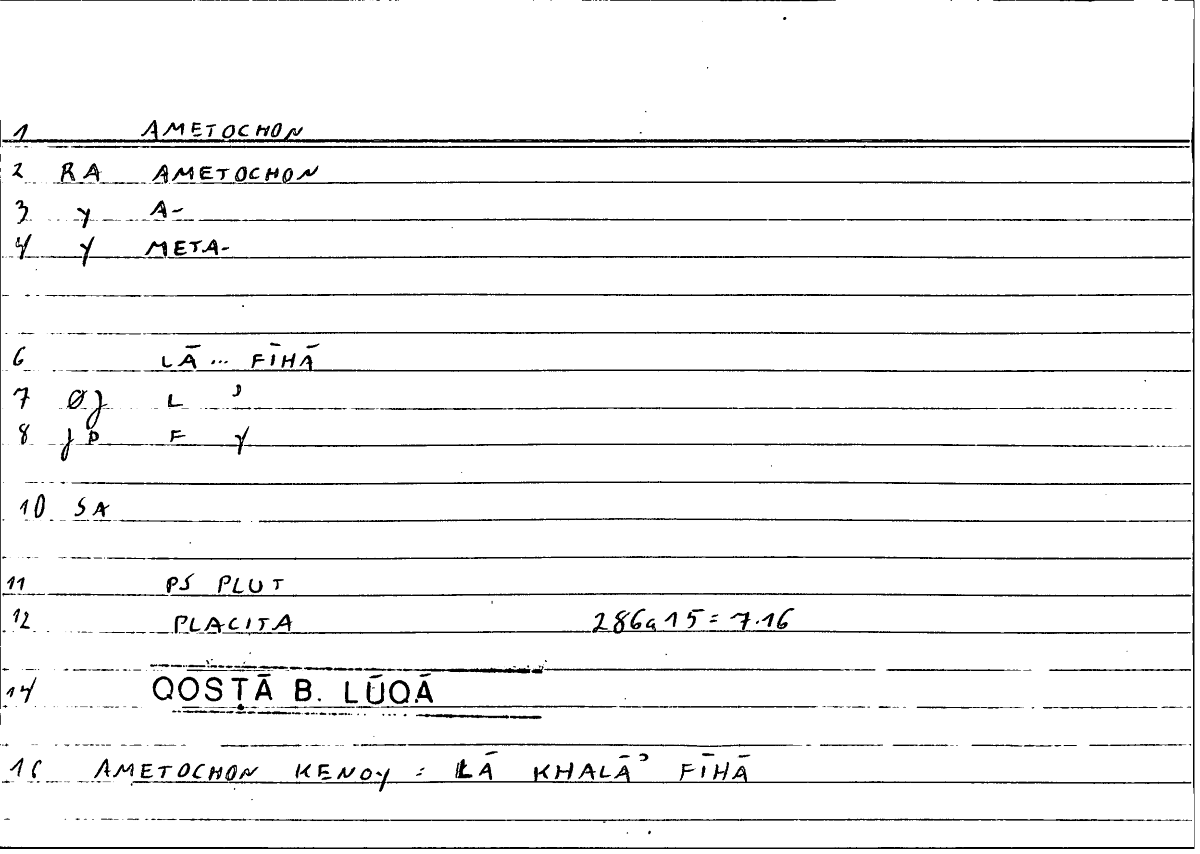 1 AMETOCHON
2 RA AMETOCHON
3 y A-
4 y META-
6 LĀ ... FĪHĀ
7 ØJ L ʾ
8 JP F y
10 SA
11 PS PLUT
12 PLACITA 286a15 = 7.16
14 QOSṬĀ B. LŪQĀ
16 AMETOCHON KENOY : LĀ KHALĀʾ FĪHĀ